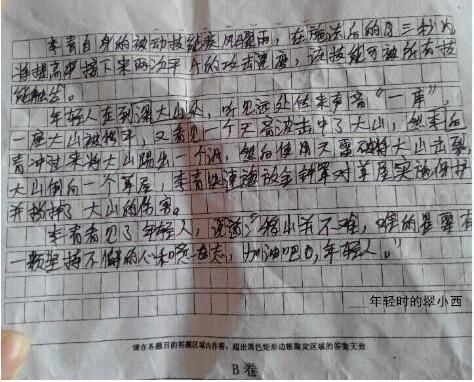 李青自身的被动技能疾风骤雨，在施法后的3三秒内
将提高李接下来两次平A的攻击速度，该技能可被所有技
能触发。
年轻人在到深大山处，听见远处传来声音“一库”，
一座大山被移平，又看见一个天音波击中了大山，然李后
青冲过来将大山踢出一个洞，然后使用天雷破将大山击到
大山倒向一个草屋，李青快速施放金钟罩对草屋实施保护
并抵挡了大山的伤害。
李青看见了年轻人，说道：“移山并不难，难的是要有
一颗坚持不懈的心和意志，加油吧，年轻人。”
年轻时的翠小西
请在各题目的答题区域内作答，超出黑色矩形边框限定区域的答案无效
B卷